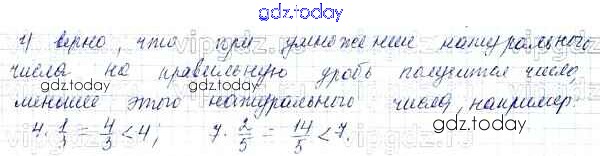 gdz.today
г) верно, что при умножение натурального
числа на правильную дробь получится число
gdz.today gdz.today
меньшее этого натурального числа, например
4 · 1/3 = 4/3 < 4; 7 · 2/5 = 14/5 < 7.
gdz.today